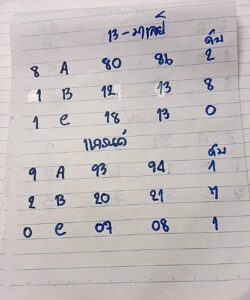 13-มาเลย์
ดับ
8 A 80 86 2
1 B 12 13 8
1 C 18 13 0
แกรนด์
ดับ
9 A 93 94 1
2 B 20 21 7
0 C 07 08 1